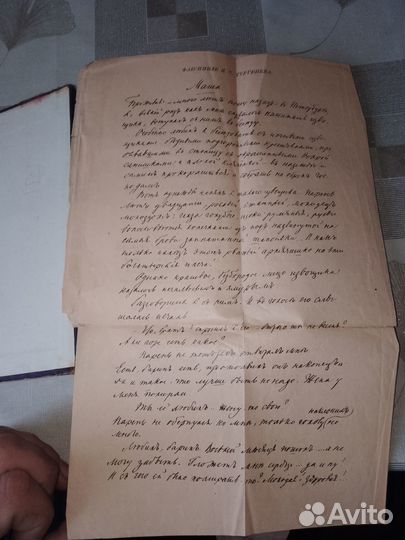 ФАКСИМИЛЕ И. С. ТУРГЕНЕВА
Маша
много лѣтъ тому назадъ въ Петербур
гѣ, всякій разъ какъ мнѣ случалось нанимать изво
щика, вступалъ съ нимъ въ бесѣду.
Особенно любилъ я бесѣдовать съ ночными изво
щиками бѣдными подгородными крестьянами, при
бывавшими въ столицу съ окрашенными вохрой
санишками и плохой клячонкой въ надеждѣ и
самимъ прокормиться и собрать на оброкъ гос
подамъ.
Вотъ однажды нанялъ я такого извощика. Парень
лѣтъ двадцати, рослый, статный, молодецъ
молодцомъ: глаза голубые, щеки румяныя, русые
волосы вьются колечками изъ подъ надвинутой на
самыя брови заплатанной шапоньки. И какъ
только налѣзъ этотъ рваный армячишко на эти
богатырскія плеча!
Однако красивое, безбородое лицо извощика
казалось печальнымъ и хмурымъ.
Разговорился я съ нимъ. И въ голосѣ его слы
шалась печаль.
Что, братъ? спросилъ я его отчего ты не веселъ?
Али горе есть какое?
Парень не тотчасъ отвѣчалъ мнѣ
Есть, баринъ, есть, промолвилъ онъ наконецъ
Да и такое, что лучше быть не надо. Жена у
меня померла
Ты её любилъ жену-то свою?
Парень не обернулся ко мнѣ; только голову
много.
Любилъ, баринъ. Восьмой мѣсяцъ пошолъ а не
могу забыть. Гложетъ мнѣ сердце да и ну!
И съ чего ей было помирать-то? Молодая здоровая!
Avito